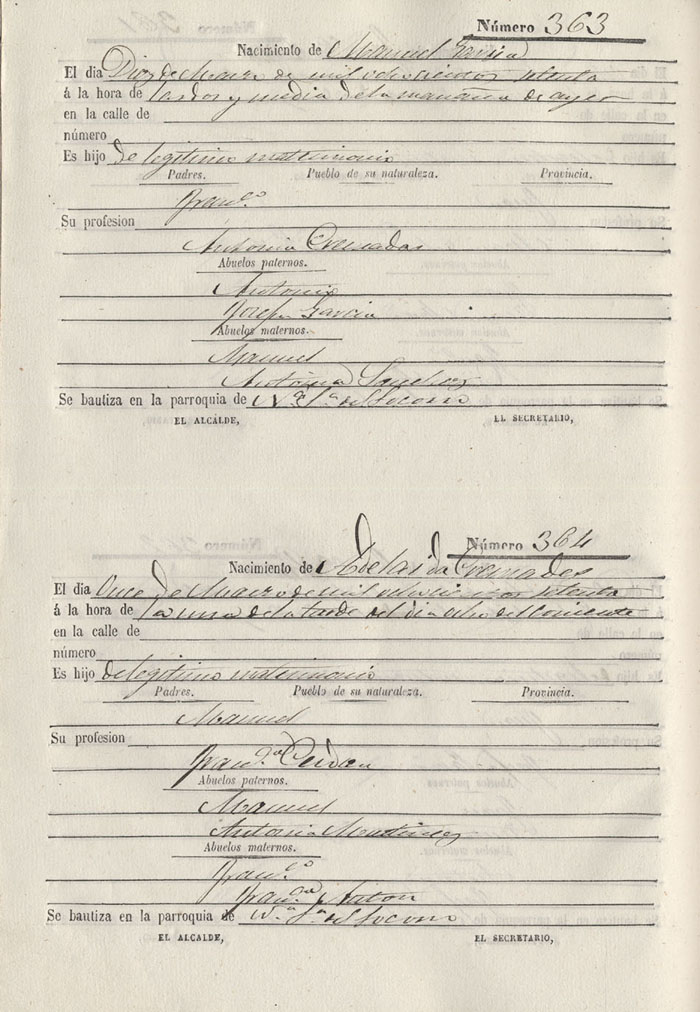 Número 363
Nacimiento de Manuel Garcia
El dia Diez de Marzo de mil ochocientos setenta
á la hora de las dos y media de la mañana de ayer
en la calle de
número
Es hijo de legitimo matrimonio
Padres. Pueblo de su naturaleza. Provincia.
Franco.
Su profesion
Antonia Cremades
Abuelos paternos.
Antonio
Josefa Garcia
Abuelos maternos.
Manuel
Antonia Sanchez
Se bautiza en la parroquia de Na. Sa. del Socorro
EL ALCALDE, EL SECRETARIO,
Número 364
Nacimiento de Adelaida Cremades
El dia Once de Marzo de mil ochocientos setenta
á la hora de la una de la tarde del dia ocho del corriente
en la calle de
número
Es hijo de legitimo matrimonio
Padres. Pueblo de su naturaleza. Provincia.
Manuel
Su profesion
Franca.
Abuelos paternos.
Manuel
Antonia Martinez
Abuelos maternos.
Franco.
Franca. Anton
Se bautiza en la parroquia de Na. Sa. del Socorro
EL ALCALDE, EL SECRETARIO,